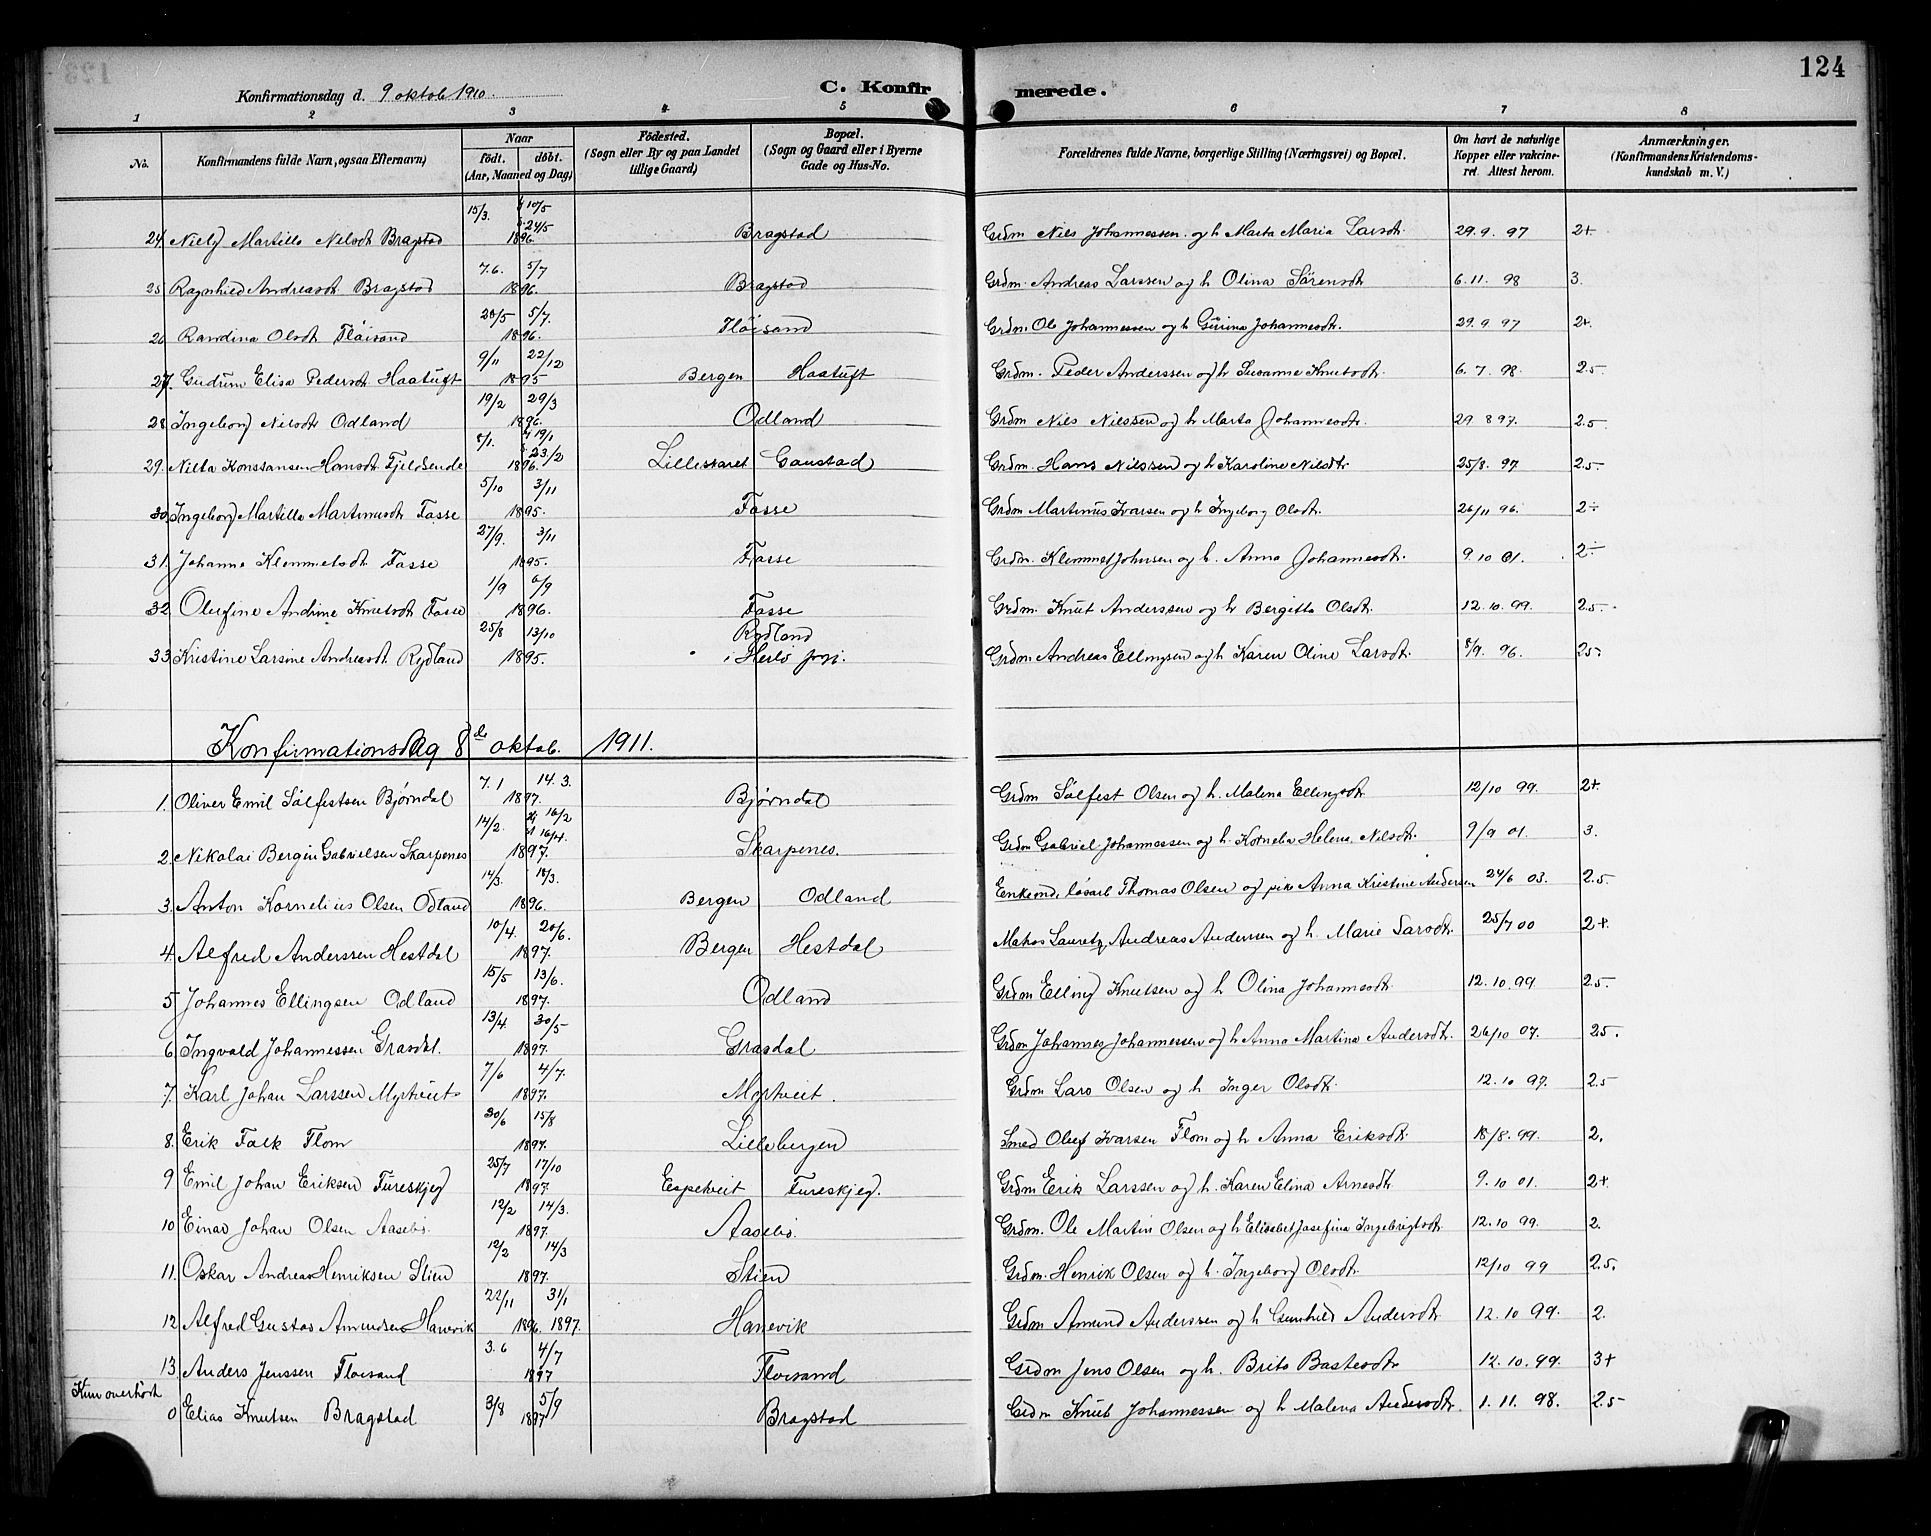 124
Konfirmationsdag d. 9 oktob 1910.
C. Konfirmerede.
1 2 3 4 5 6 7 8
No. Konfirmandens fulde Navn, ogsaa Efternavn) Naar födt. döbt. (Aar, Maaned og Dag) Födested. (Sogn eller By og paa Landet tillige Gaard) Bopæl. (Sogn og Gaard eller i Byerne Gade og Hus-No. Forældrenes fulde Navne, borgerlige Stilling (Næringsvei) og Bopæl. Om havt de naturlige Kopper eller vakcineret. Attest herom. Anmærkninger. (Konfirmandens Kristendomskundskab m. V.)
24 Nielsj Martille Nilsdt Bragstad 15/3. 10/5 24/5 1896. Bragstad Grdm Nils Johannessen og h Marta Maria Larsdt. 29.9.97 2+
25 Ragnhild Andreasdt Bragstad 7.6. 5/7 1896. Bragstad Grdm. Andreas Larssen og h Olina Sørensdt 6.11.98 3.
26 Randina Olsdt Fløisand 28/5 5/7. 1896. Fløisand Grdm. Ole Johannessen og h Gurina Johannesdt. 29.9.97 2+.
27. Gudrun Elisa Pedersdt Haatuft 9/11 22/12 1895 Bergen Haatuft Grdm. Peder Anderssen og h Susanne Knutsdt. 6.7.98. 2.5
28 Ingeborg Nilsdt Odland 19/2 29/3 1896. Odland Grdm Nils Nilssen og h Marta Johannesdt. 29 8 97. 2.5
29. Nilta Konstanse Hansdt Fjeldsende 8/1. 19/1 23/2 1896. Lilleskaret Gaustad Grdm. Hans Nilssen og h Karoline Nilsdt 25/8.97 2.5
30 Ingeborg Martille Martinusdt Fosse 5/10 3/11 1895. Fosse Grdm Martinus Ivarsen og h Ingeborg Olsdt. 26/11 96. 2÷
31. Johanna Klemmetsdt Fosse 27/9. 3/11 1895. Fosse Grdm. Klemmet Johnsen og h. Anna Johannesdt. 9.10 01. 2÷
32 Olufine Andrine Knutsdt Fosse 1/9 6/9 1896. Fosse Grdm. Knut Anderssen og h Bergitta Olsdt. 12.10.99. 2.5
33 Kristine Larsine Andreasdt Rydland 25/8 13/10 1895. Rydland i Herlø prgj. Grdm Andreas Ellingsen og h Karen Oline Larsdt. 8/9. 96. 2.5
Konfirmationsdag 8de oktob. 1911.
1. Oliver Emil Sølfestsen Bjørndal 7.1 14.3. 1897. Bjørndal Grdm Sølfest Olsen og h. Malena Ellingsdt 12/10 99. 2+
2. Nikolai Bergin Gabrielsen Skarpenes 14/2. 16/2 16/4. 1897. Skarpenes. Grdm Gabriel Johannessen og h. Kornelia Helena Nilsdt 9/9 01. 3.
3. Anton Kornelius Olsen Odland 14/3. 18/3. 1896. Bergen Odland Enkemd. løsarb Thomas Olsen og pike Anna Kristine Andersen 24/6 03. 2.5.
4. Alfred Anderssen Hestdal 10/4. 20/6. 1897. Bergen Hestdal Matros Lauretz Andreas Anderssen og h. Marie Larsdt. 25/7 00 2+
5. Johannes Ellingsen Odland 15/5 13/6. 1897. Odland Grdm Elling Knutsen og h Olina Johannesdt 12.10.99 2.5.
6 Ingvald Johannessen Grasdal. 13/4. 30/5 1897. Grasdal Grdm Johannes Johannessen og h Anna Martina Andersdt. 26/10 07. 2.5.
7. Karl Johan Larssen Myrtveit 7/6 4/7. 1897. Myrtveit. Grdm Lars Olsen og h Inger Olsdt. 12.10 97. 2.5
8. Erik Falk Flom 30/6 15/8 1897. Lillebergen Smed Oluf Ivarsen Flom og h Anna Eriksdt. 18/8.99. 2.
9 Emil Johan Eriksen Fureskjeg 25/7 17/10 1897 Espetveit Fureskjeg. Grdm Erik Larssen og h. Karen Elina Arnesdt 9.10 01. 2+
10 Einar Johan Olsen Aasebø. 12/2 14/3. 1897. Aasebø. Grdm. Ole Martin Olsen og h Elisabet Josefina Ingebrigtsdt. 12.10 99. 2.
11. Oskar Andreas Henriksen Stien 12/2 14/3 1897. Stien Grdm. Henrik Olsen og h. Ingeborg Olsdt. 12/10 99 2.5.
12 Alfred Gustav Amundsen Hanevik 22/11 31/1 1896. 1897. Hanevik Grdm Amund Anderssen og h Gunhild Andersdt 12.10 99. 2.
13 Anders Jenssen Floisand 3.6 4/7 1897 Floisand Grdm Jens Olsen og h. Brita Bastesdt 12.10.99. 3+
Kun overhørt
0 Elias Knutsen Bragstad 3/8 5/9 1897 Bragstad Grdm Knut Johannessen og h Malena Andersdt. 1.11.98. 2.5